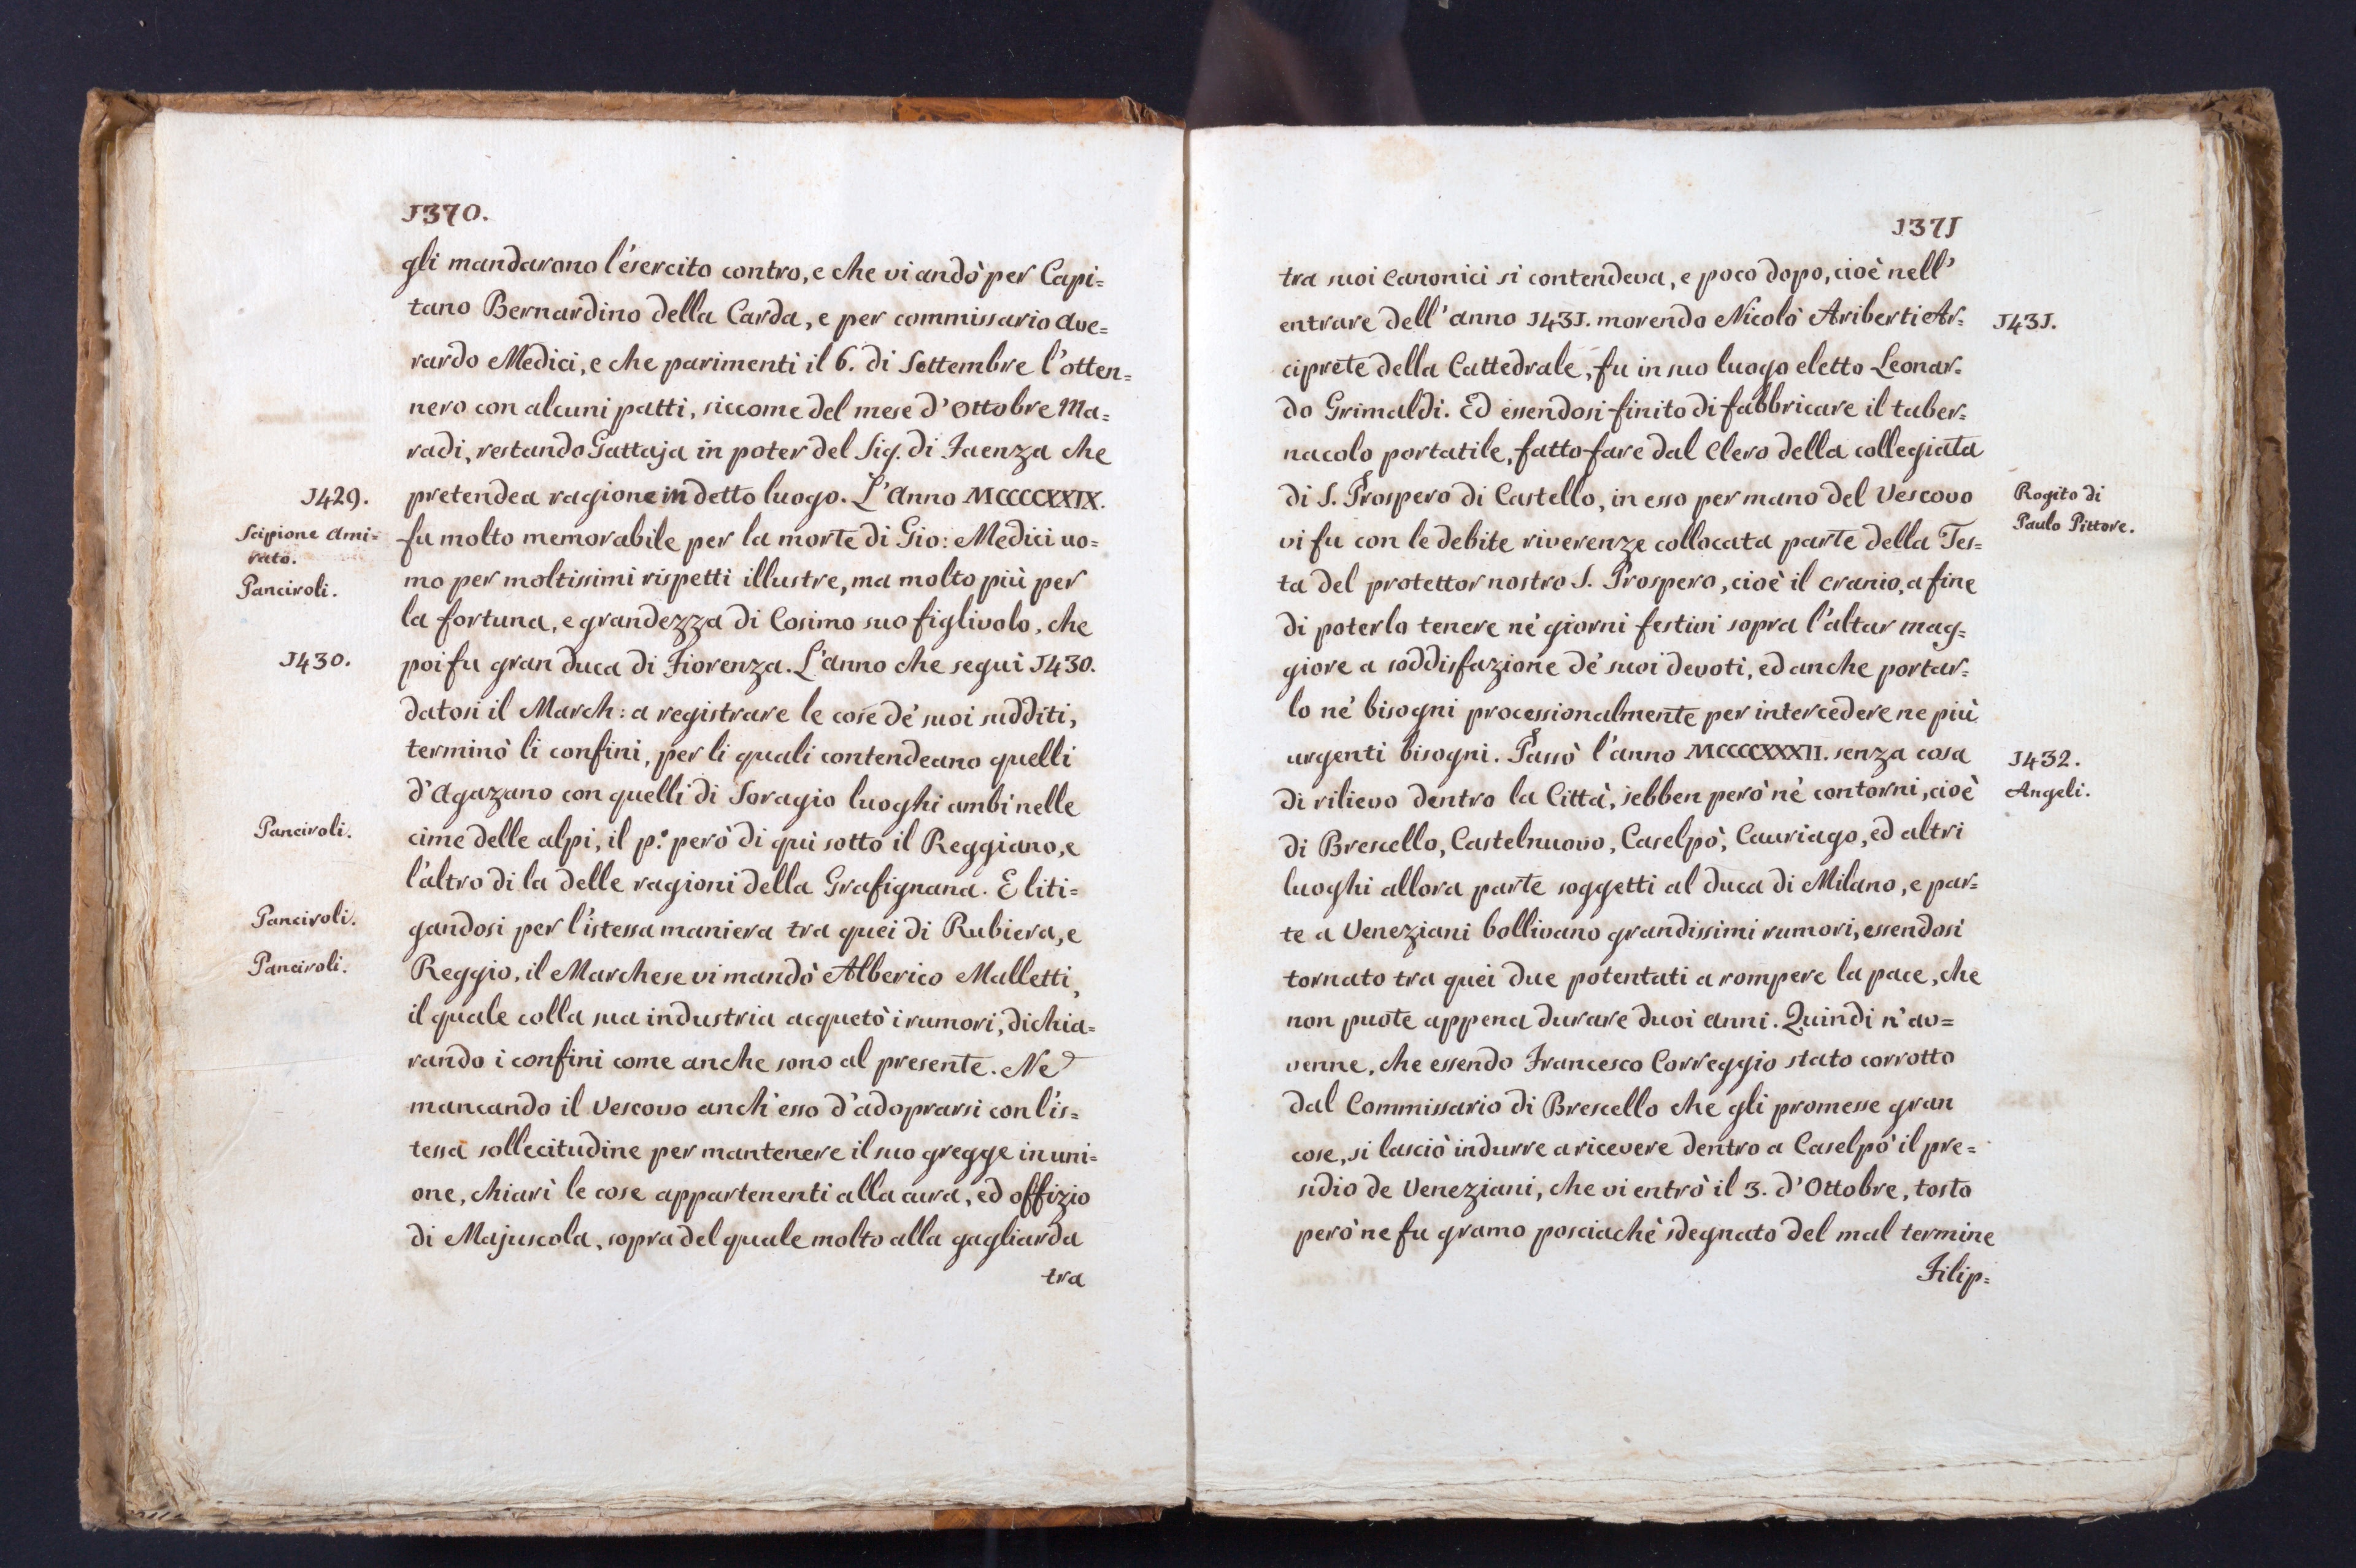 1370.
gli mandarono l'esercito contro, e che vi andò per Capi=
tano Bernardino della Carda, e per commissario Ave=
rardo Medici, e che parimenti il 6. di Settembre l'otten=
nero con alcuni patti, siccome del mese d'Ottobre Ma=
radi, restando Gattaja in poter del Sig. di Faenza che
1429.
pretendea ragione in detto luogo. L'Anno MCCCCXXIX.
Scipione Ami=
rato.
fu molto memorabile per la morte di Gio: Medici uo=
Panciroli.
mo per moltissimi rispetti illustre, ma molto più per
la fortuna, e grandezza di Cosimo suo figlivolo, che
1430.
poi fu gran duca di Fiorenza. L'anno che seguì 1430.
datosi il March: a registrare le cose de' suoi sudditi,
terminò li confini, per li quali contendeano quelli
d'Agazano con quelli di Soragio luoghi ambi nelle
Panciroli.
cime delle alpi, il p.º però di quì sotto il Reggiano, e
l'altro di la delle ragioni della Grafignana. E liti=
Panciroli.
gandosi per l'istessa maniera tra quei di Rubiera, e
Panciroli.
Reggio, il Marchese vi mandò Alberico Malletti,
il quale colla sua industria acquetò i rumori, dichia=
rando i confini come anche sono al presente. Ne
mancando il Vescovo anch'esso d'adoprarsi con l'is=
tessa sollecitudine per mantenere il suo gregge in uni=
one, chiarì le cose appartenenti alla cura, ed offizio
di Majuscola, sopra del quale molto alla gagliarda
tra
1371
tra suoi canonici si contendeva, e poco dopo, cioè nell'
entrare dell'anno 1431. morendo Nicolò Ariberti Ar=
1431.
ciprete della Cattedrale, fu in suo luogo eletto Leonar=
do Grimaldi. Ed essendosi finito di fabbricare il taber=
nacolo portatile, fatto fare dal Clero della collegiata
di S. Prospero di Castello, in esso per mano del Vescovo
Rogito di
Paulo Pittore.
vi fu con le debite riverenze collocata parte della Tes=
ta del protettor nostro S. Prospero, cioè il cranio, a fine
di poterlo tenere ne' giorni festivi sopra l'altar mag=
giore a soddisfazione de' suoi devoti, ed anche portar=
lo ne' bisogni processionalmente per intercedere ne più
urgenti bisogni. Passò l'anno MCCCCXXXII. senza cosa
1432.
Angeli.
di rilievo dentro la Città, sebben però ne' contorni, cioè
di Brescello, Castelnuovo, Caselpò, Cauriago, ed altri
luoghi allora parte soggetti al duca di Milano, e par=
te a Veneziani bollivano grandissimi rumori, essendosi
tornato tra quei due potentati a rompere la pace, che
non puote appena durare duoi anni. Quindi n'av=
venne, che essendo Francesco Correggio stato corrotto
dal Commissario di Brescello che gli promesse gran
cose, si lasciò indurre a ricevere dentro a Caselpò il pre=
sidio de Veneziani, che vi entrò il 3. d'Ottobre, tosto
però ne fu gramo posciachè sdegnato del mal termine
Filip=